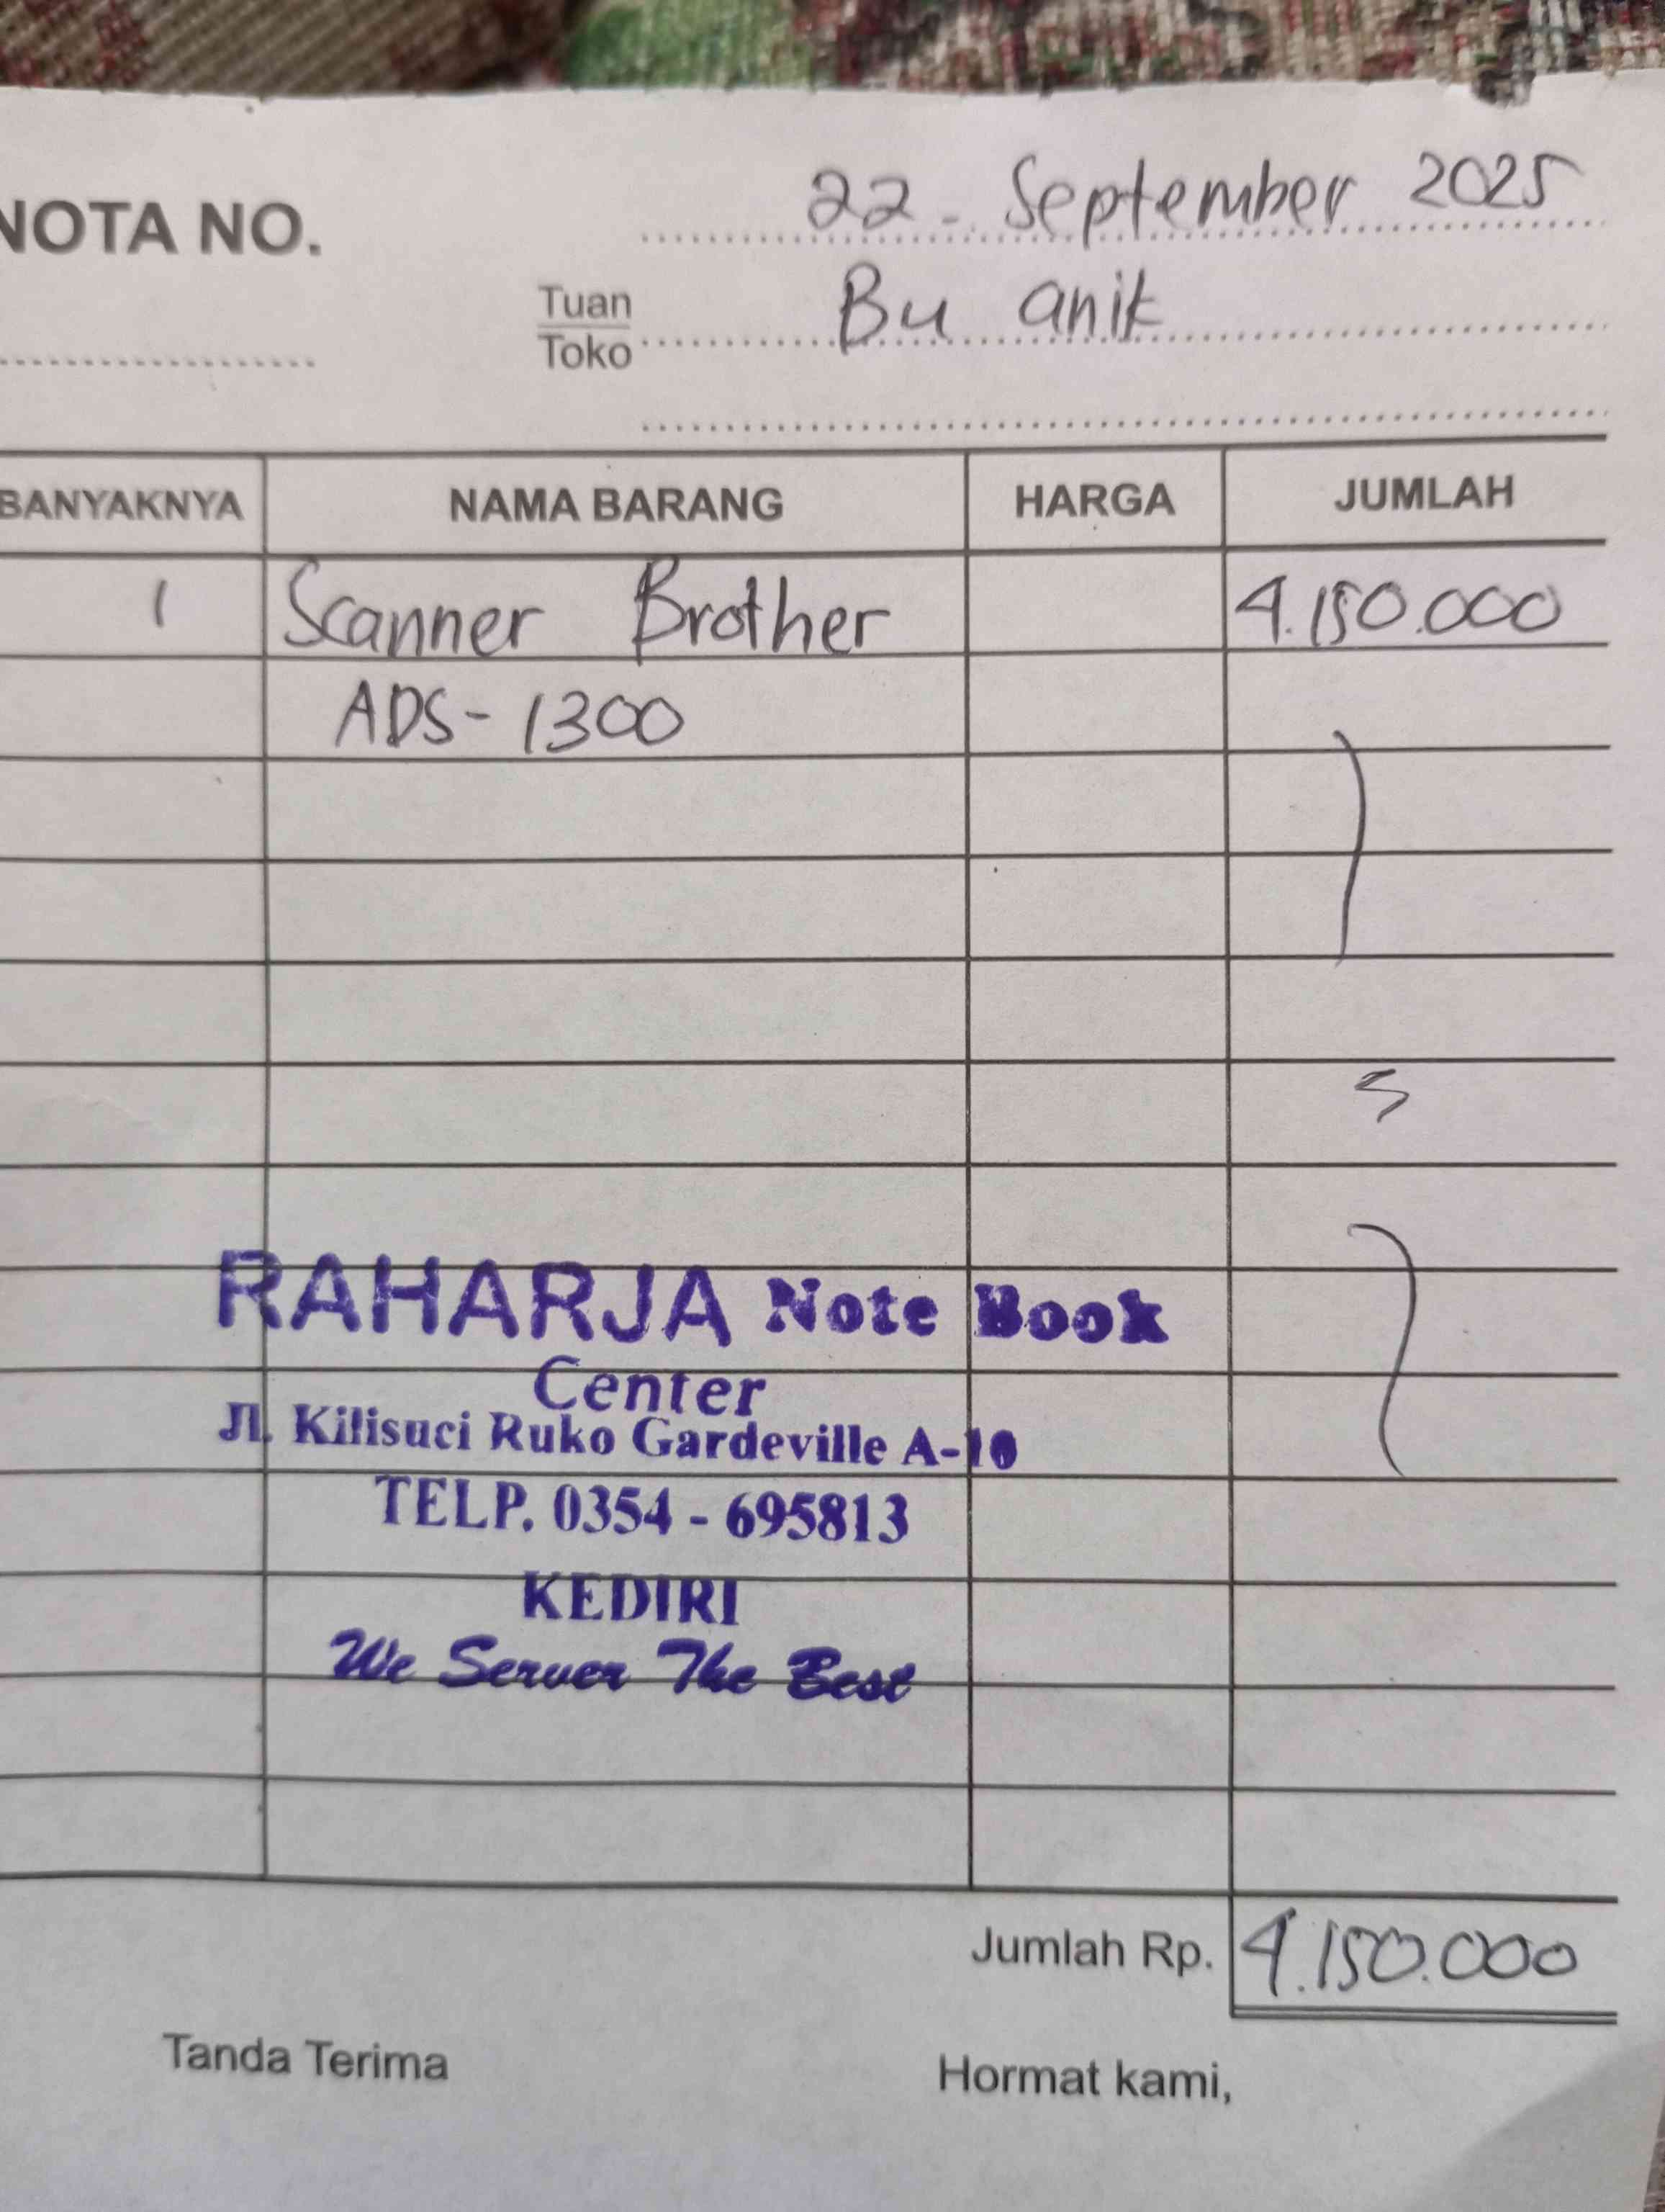 NOTA NO.
22 - September 2025
Tuan
Toko
Bu anik
BANYAKNYA NAMA BARANG HARGA JUMLAH
1 Scanner Brother 4.150.000
ADS - 1300
RAHARJA Note Book
Center
Jl. Kilisuci Ruko Gardeville A-10
TELP. 0354 - 695813
KEDIRI
We Server The Best
Jumlah Rp. 4.150.000
Tanda Terima Hormat kami,